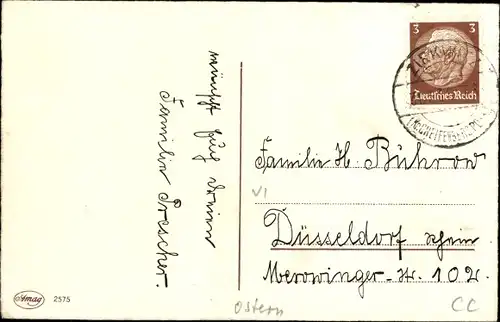 wünscht Euch Ihnen
Familie Drescher.
3 3
Deutsches Reich
Familie H. Bührow
VI
Düsseldorf Rhein
Merowinger-str. 102.
Amag 2575
Ostern
CC